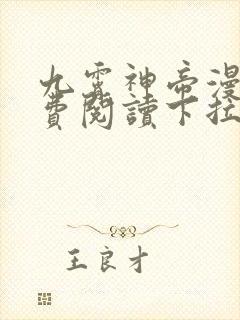 九霄神帝漫
費閱讀下拉
王良才